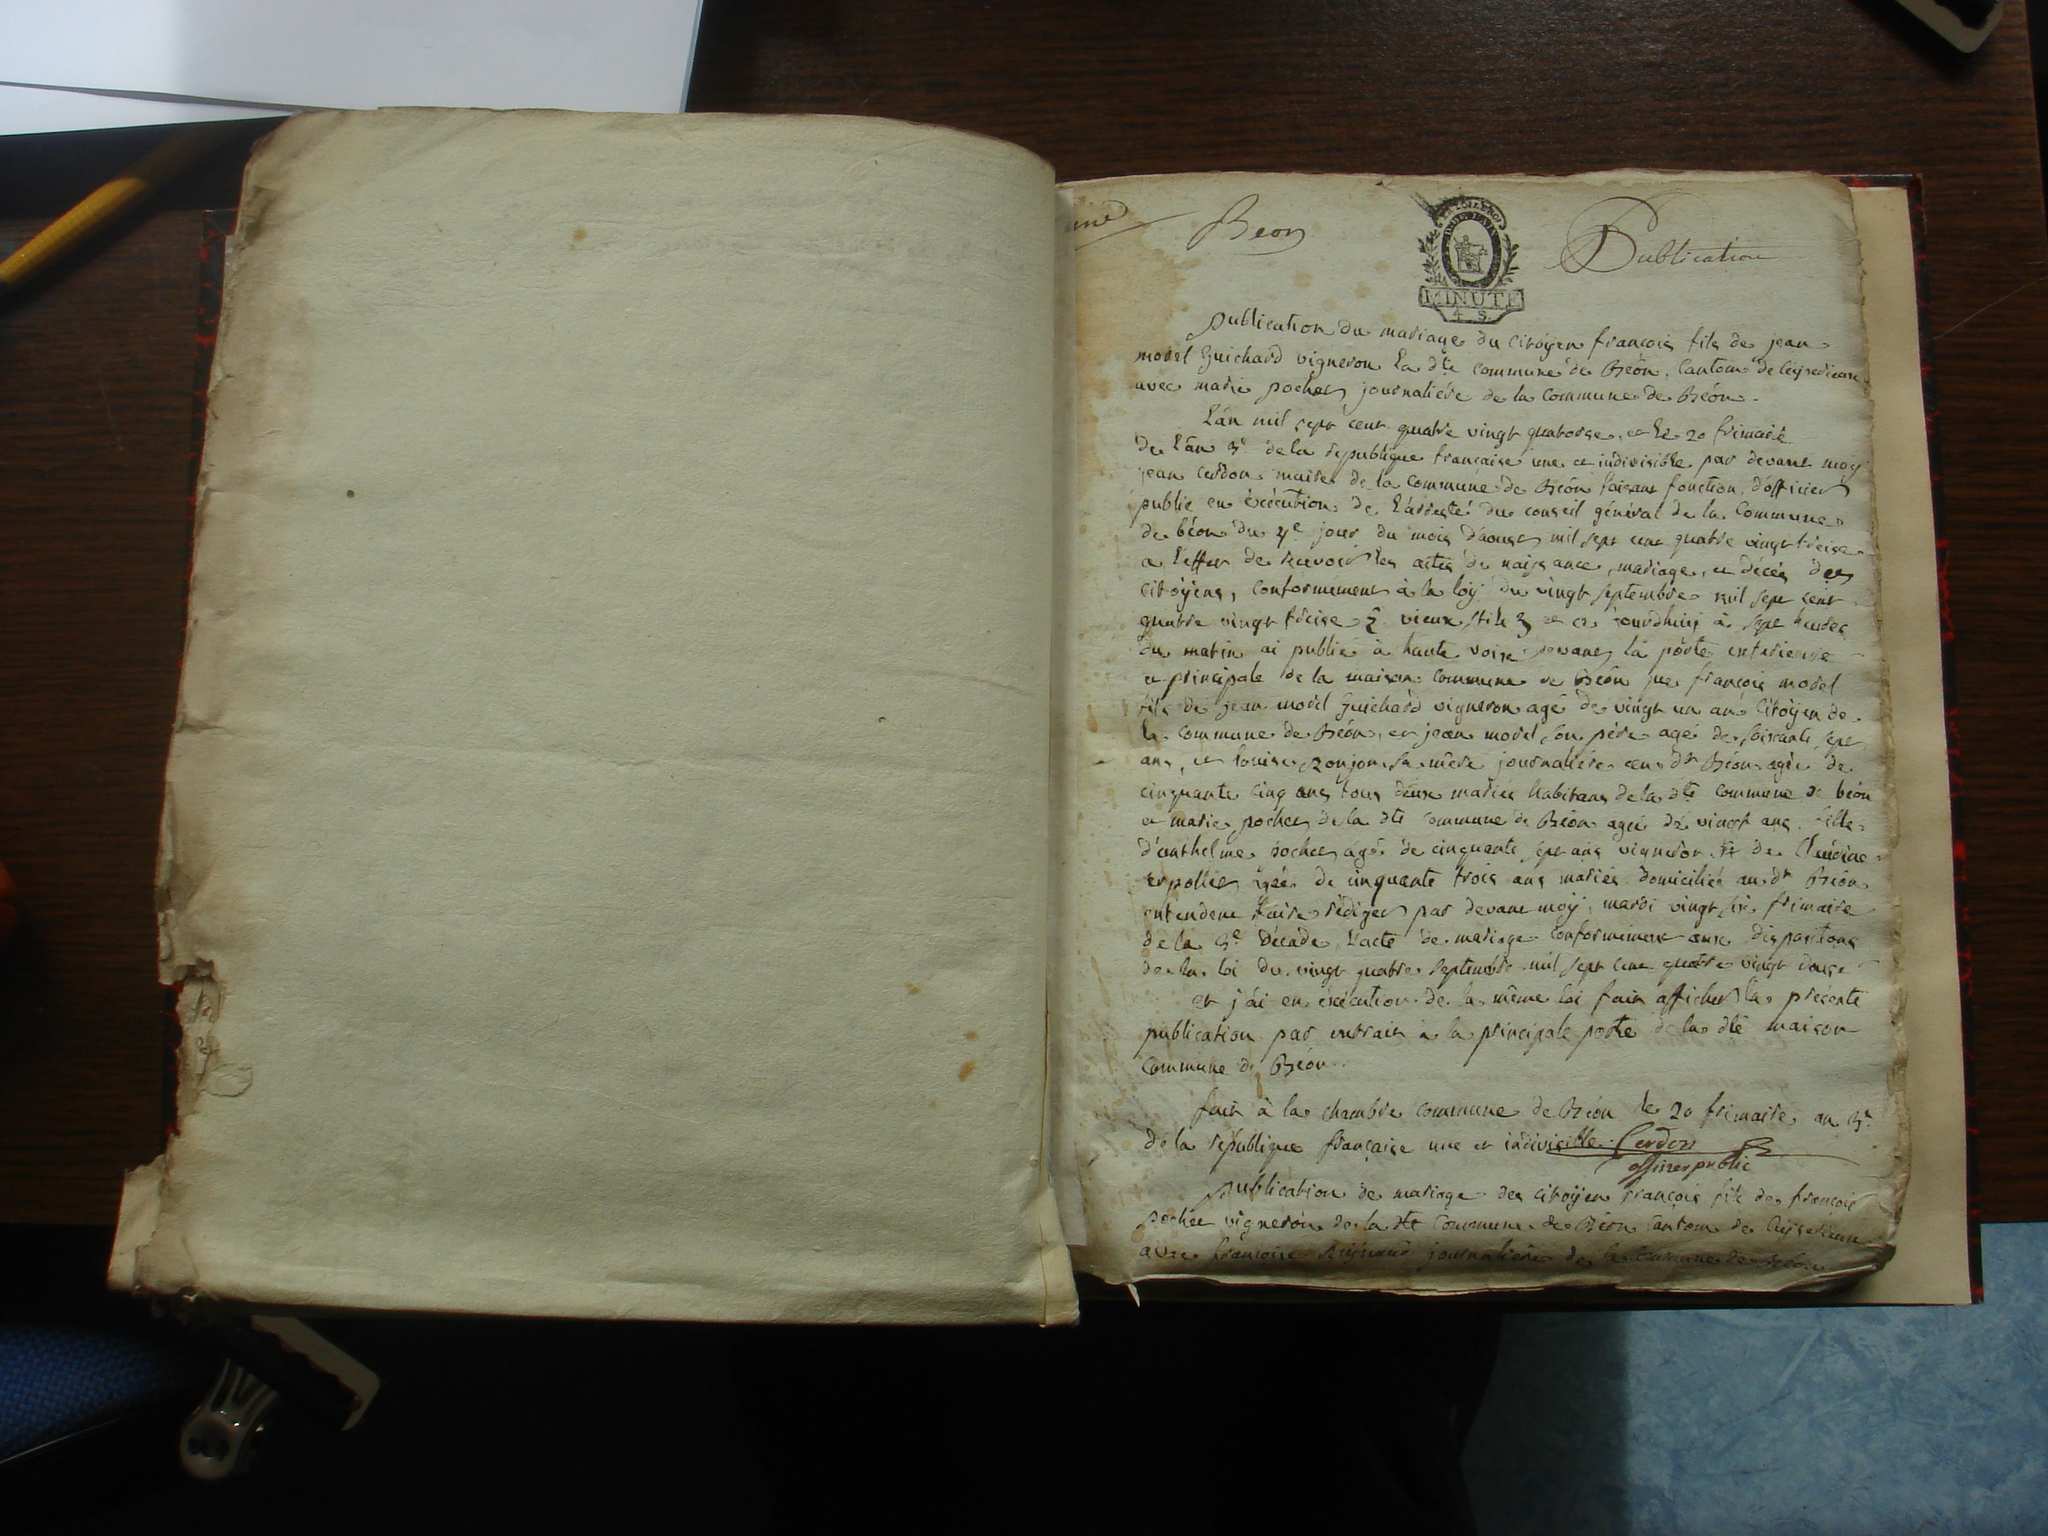 Béon
Publication
MINUTE
4 S.
publication du mariage du citoyen françois fils de jean
morel Guichard vigneron la dte commune de Béon, Canton de
avec marie pochet journalière de la commune de Béon.
L'an mil sept cent quatre vingt quatorse, et le 20 frimaire
de l'an 3e de la republique francaise une et indivisible, par devant moy
jean cerdon maire de la commune de Béon faisant fonction d'officier
public en éxécution de l'arresté du conseil général de la Commune
de béon du 4e jour du mois daoust mil sept cent quatre vingt treise
a l'effet de recevoir les actes de naissance, mariage, et décés des
citoÿens, conformément à la loÿ du vingt septembre mil sept cent
quatre vingt treise vieux stile et à sept heures
du matin ai publié à haute voix devant la porte exterieure
et principale de la maison commune de Béon que françois morel
fils de jean morel Guichard vigneron agé de vingt un an citoÿen de
la commune de Béon, et jean morel son père agé de soixante sept
ans, et louise sa mère journalière au dt Béon agée de
cinquante cinq ans tous deux mariés habitans de la dte commune de béon
et marie pochet de la dte commune de Béon agée de vingt ans fille
d'anthelme pochet agé de cinquante sept ans vigneron et de Claudine
agée de cinquante trois ans mariés domiciliés au dt Béon
entendent faire rédiger par devant moÿ, mardi vingt six frimaire
de la 3e décade, l'acte de mariage conformement aux
de la loi du vingt quatre septembre mil sept cent quatre vingt douse
et j'ai en éxécution de la même loi fait afficher la présente
publication par extrait à la principale porte de la dte maison
commune de Béon.
fait à la chambre commune de Béon le 20 frimaire an 3e
de la république française une et indivisible. Cerdon
officier public
publication de mariage des citoÿen françois fils de françois
pochet vigneron de la dte commune de Béon Canton de
avec françoise journalière de la commune de